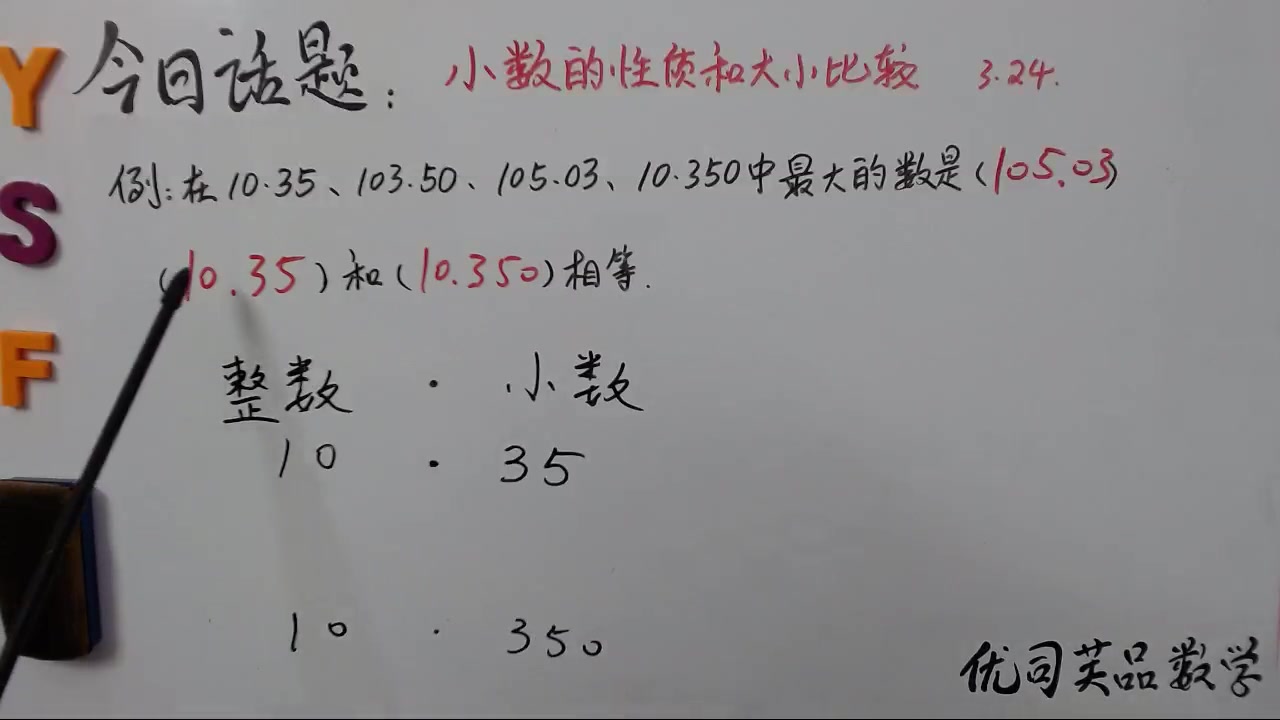 今日话题：小数的性质和大小比较 3.24.
例：在10.35、103.50、105.03、10.350中最大的数是(105.03)
(10.35)和(10.350)相等.
整数 · 小数
10 · 35
10 · 350
优司英品数学
Y
S
F